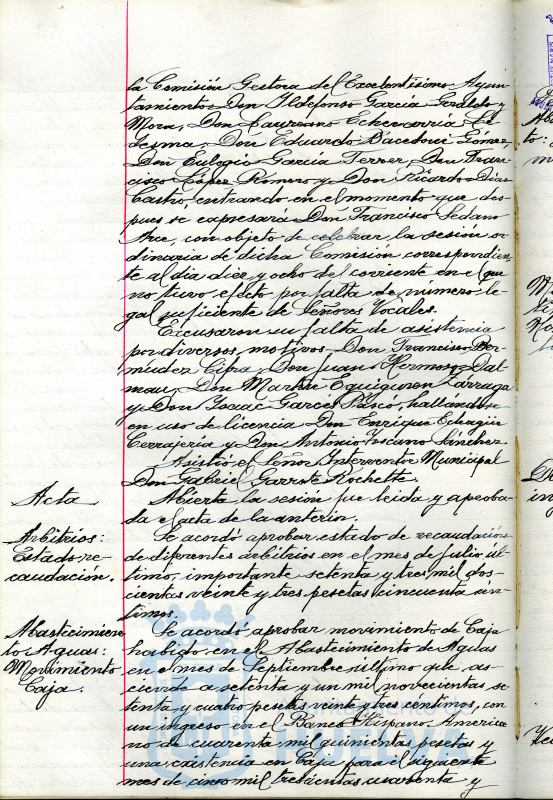 la Comisión Gestora del Excelentísimo Ayun-
tamiento Don Ildefonso García
Mora, Don Laureano Echevarría Le-
desma, Don Eduardo Bacedoni Gómez,
Don Eulogio García Ferrer, Don Fran-
cisco López Romero y Don Ricardo Díaz
Castro, entrando en el momento que des-
pues se expresará Don Francisco Sedano
Arce, con objeto de celebrar la sesión or-
dinaria de dicha Comisión correspondien-
te al dia diez y ocho del corriente en el que
no tuvo efecto por falta de número le-
gal suficiente de Señores Vocales.
Excusaron su falta de asistencia
por diversos motivos Don Francisco Ber-
múdez Don Juan Hermoso Dal-
mau, Don Martín Eguiguren Zárraga
y Don Isaac García Pascó, hallándose
en uso de licencia Don Enrique Echagüe
Cerrajería y Don Antonio Toscano Sánchez
Asistió el Señor Interventor Municipal
Don Gabriel Garrote Rochelte.
Acta
Abierta la sesión fue leida y aproba-
da el acta de la anterior.
Arbitrios:
Estado re-
caudación.
Se acordó aprobar estado de recaudación
de diferentes arbitrios en el mes de Julio úl-
timo, importante setenta y tres mil dos-
cientas veinte y tres pesetas cincuenta cén-
timos.
Abastecimien-
to Aguas:
Movimiento
Caja.
Se acordó aprobar movimiento de Caja
habido en el Abastecimiento de Aguas
en el mes de Septiembre último que as-
ciende a setenta y un mil novecientas se-
tenta y cuatro pesetas veinte y tres centimos, con
un ingreso en el Banco Hispano America-
no de cuarenta mil quinientas pesetas y
una existencia en Caja para el siguiente
mes de cinco mil trescientas cuarenta y
HUELVA